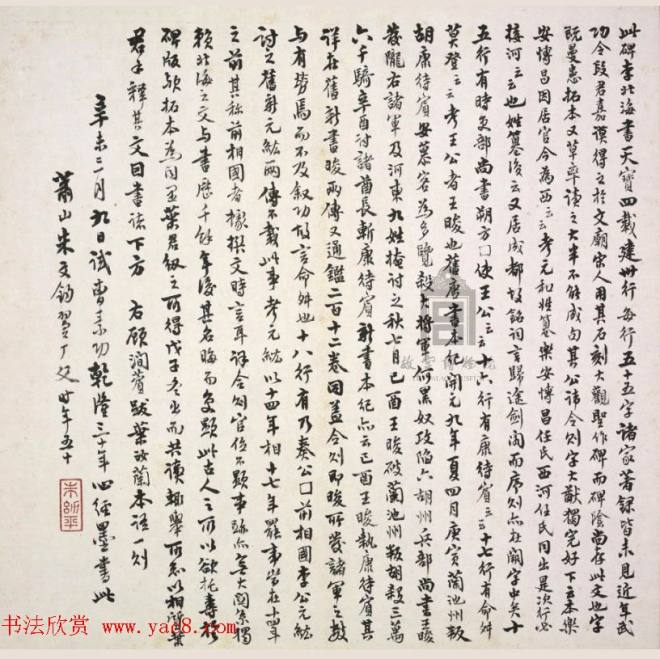 此碑李北海書天寶四載建卅行每行五十五字諸家著録皆未見近年武
功令段君嘉謨得之於文廟宋人用其石刻大觀聖作碑而碑陰尚存此文也字
既曼患拓本又草率讀之大半不能成句其公諱令则字大猷獨完好下云本樂
安博昌因居官今為西云云考元和姓纂樂安博昌任氏西河任氏同出是次行必
接河云云也姓纂後云又居成都故銘詞言歸途劍阁而序则亦在闕字中矣十
五行有時吏部尚書朔方囗使王公云云十六行有康待賓云云十七行有命舛
莫登云云考王公者王晙也舊唐書本紀開元九年夏四月庚寅蘭池州叛
胡康待賓安慕容為多覽殺大將軍何黑奴攻陷六胡州兵部尚書王晙
發隴右諸軍及河東九姓掩討之秋七月己酉王晙破蘭池州叛胡殺三萬
六千騎辛酉討諸酋長斬康待賓新書本紀亦云己酉王晙執康待賓其
詳在舊新書晙兩傳又通鑑二百十二卷因盖令则即晙所發諸軍之數
与有勞焉而不及叙功故言命舛也十八行有乃奏公囗前相國李公元紘
討之舊新元紘兩傳不載此事考元紘以十四年相十七年罷事當在十四年
之前其称前相國者據撰文時言耳評令则官位不顯事跡亦無大關係獨
賴北海之文与書歷千餘年後其名晦而复顯此古人之所以欲托壽於
碑版歟拓本為同里葉君紉之所得戊子冬出而共讀輒舉所知以相酬葉
君手釋其文因書諸下方 右顧澗薲跋葉汝蘭本語一则
辛未二月九日試曹素功乾隆三十年四經墨書此
蕭山朱文鈞翼厂父時年五十
朱幼平
故宮博物院
书法欣赏 www.yac8.com